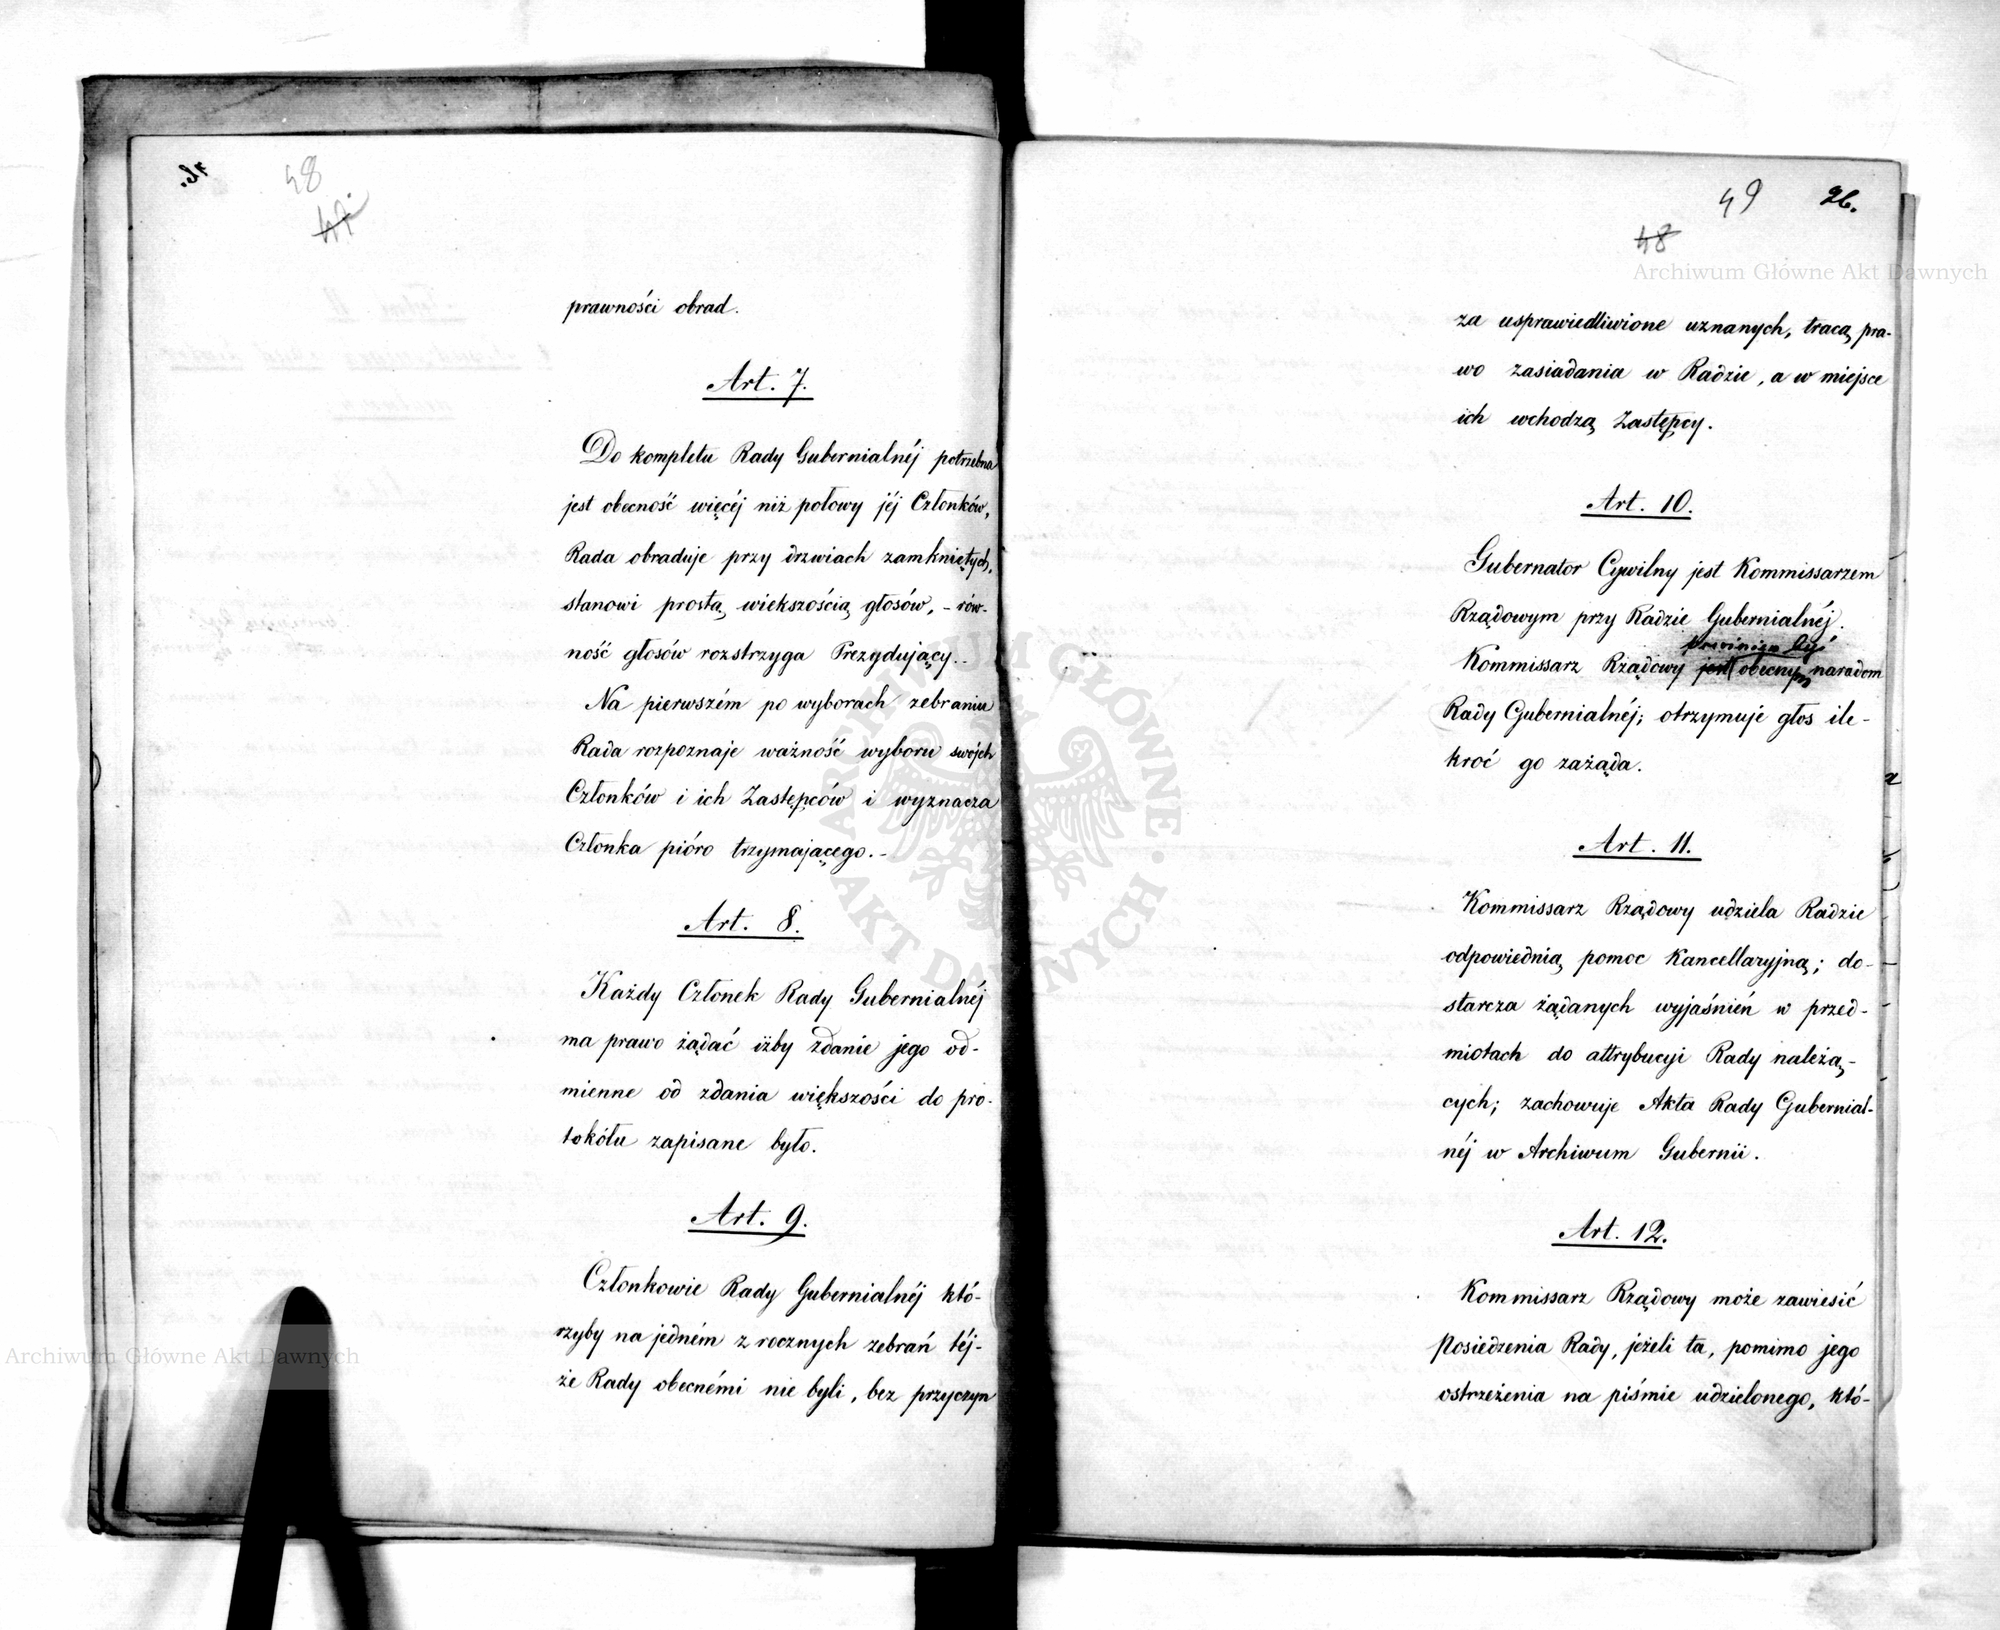 48
47.
prawności obrad.
Art. 7.
Do kompletu Rady Gubernialnéj potrzebna
jest obecność więcéj niż połowy jéj Członków,
Rada obraduje przy drzwiach zamkniętych,
stanowi prostą większością głosów, - rów-
ność głosów rozstrzyga Prezydujący. -
Na pierwszém po wyborach zebraniu
Rada rozpoznaje ważność wyboru swojch
Członków i ich Zastępców i wyznacza
Członka pióro trzymającego. -
Art. 8.
Każdy Członek Rady Gubernialnéj
ma prawo żądać iżby zdanie jego od-
mienne od zdania większości do pro-
tokółu zapisane było.
Art. 9.
Członkowie Rady Gubernialnéj któ-
rzyby na jedném z rocznych zebrań téj-
że Rady obecnémi nie byli, bez przyczyn
49 26.
48
za usprawiedliwione uznanych, tracą pra-
wo zasiadania w Radzie, a w miejsce
ich wchodzą Zastępcy.
Art. 10.
Gubernator Cywilny jest Kommissarzem
Rządowym przy Radzie Gubernialnéj.
powinien być
Kommissarz Rządowy jest obecnym naradom
Rady Gubernialnéj; otrzymuje głos ile-
kroć go zażąda.
Art. 11.
Kommissarz Rządowy udziela Radzie
odpowiednią pomoc Kancellaryjną; do-
starcza żądanych wyjaśnień w przed-
miotach do attrybucyi Rady należą-
cych; zachowuje Akta Rady Gubernial-
néj w Archiwum Gubernii.
Art. 12.
Kommissarz Rządowy może zawiesić
Posiedzenia Rady, jeżeli ta, pomimo jego
ostrzeżenia na piśmie udzielonego, któ-
Archiwum Główne Akt Dawnych
Archiwum Główne Akt Dawnych
ARCHIWUM GŁÓWNE AKT DAWNYCH